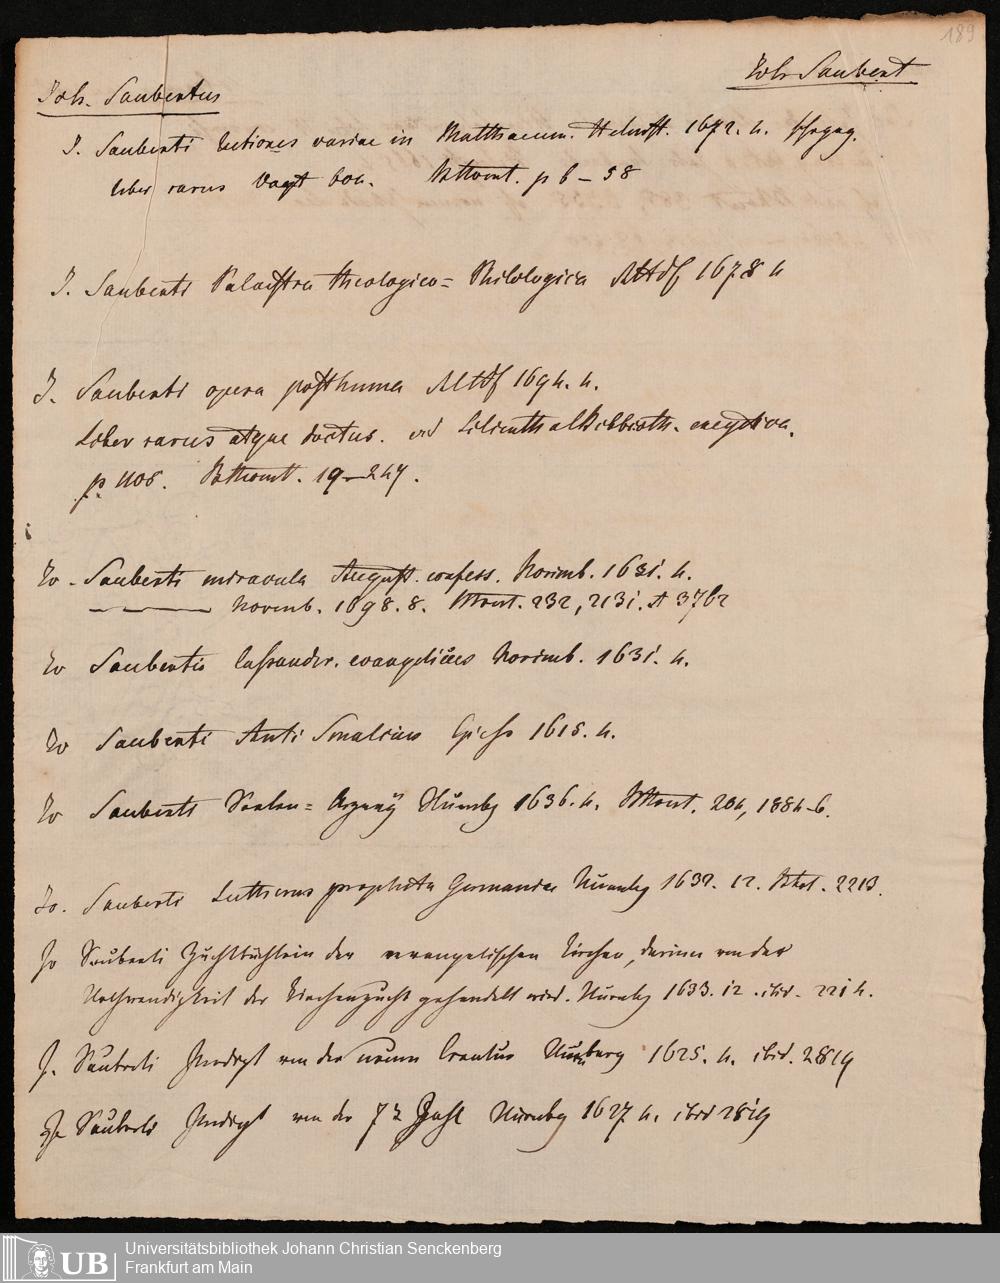 189
Joh. Saubertus
Joh Saubert
J. Sauberti lectiones variae in Matthaeum. Helmst. 1672. 4.
liber rarus Vogt 604. p 6 – 58
J. Sauberti Palaestra theologico= Philologica Altdf 1678 4
J. Sauberti opera posthuma Altdf 1694. 4.
Liber rarus atque doctus. vid Lilienthal Bibbioth. exegetica.
p. 1106. 19–247.
Jo. Sauberti miracula August. confess. Norimb. 1631. 4.
Norimb. 1698. 8. 232, 2131. A 3762
Jo Sauberti Cassander. evangelicus Norimb. 1631. 4.
Jo Sauberti Anti Smalcius Giess 1615. 4.
Jo Sauberti Seelen= Arzney Nürnbg 1636. 4. 204, 1884–6.
Jo. Sauberti Lutherus propheta Germaniae Nürnbg 1632. 12. 2213.
Jo Sauberti Zuchtbüchlein der evangelischen Kirchen, darinn von der
Nothwendigkeit der Kirchenzucht gehandelt wird. Nürnbg 1633. 12. ibid. 2214.
J. Sauberti Predigt von der neuen Creatur Nürnberg 1625. 4. ibid. 2819
Jo Sauberti Predigt von der 72 Zahl Nürnbg 1627. 4. ibid 2819
UB
Universitätsbibliothek Johann Christian Senckenberg
Frankfurt am Main